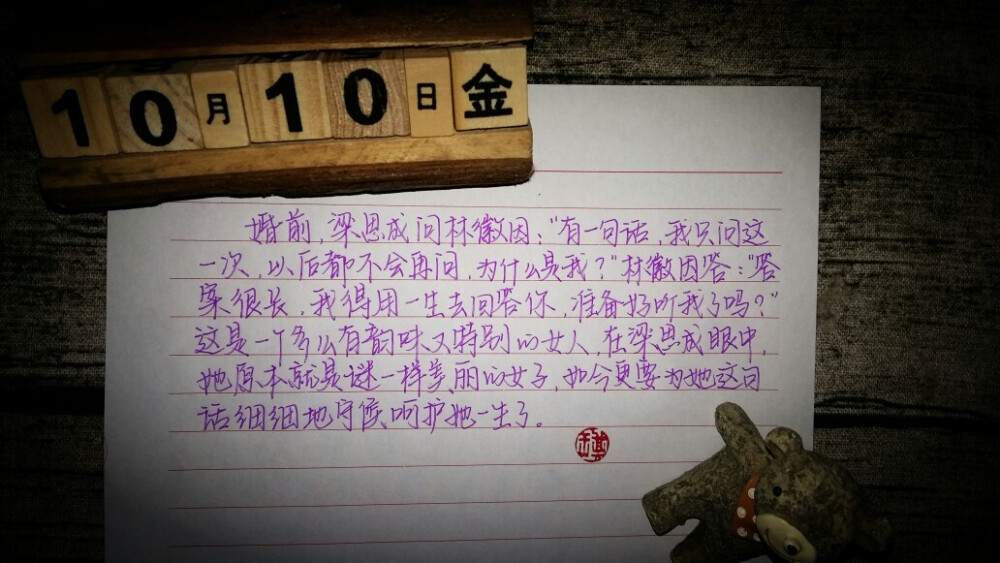 10月10日金
婚前，梁思成问林徽因："有一句话，我只问这
一次，以后都不会再问，为什么是我？"林徽因答："答
案很长，我得用一生去回答你，准备好听我了吗？"
这是一个多么有韵味又特别的女人，在梁思成眼中，
她原本就是谜一样美丽的女子，如今更要为她这句
话细细地守候呵护她一生了。